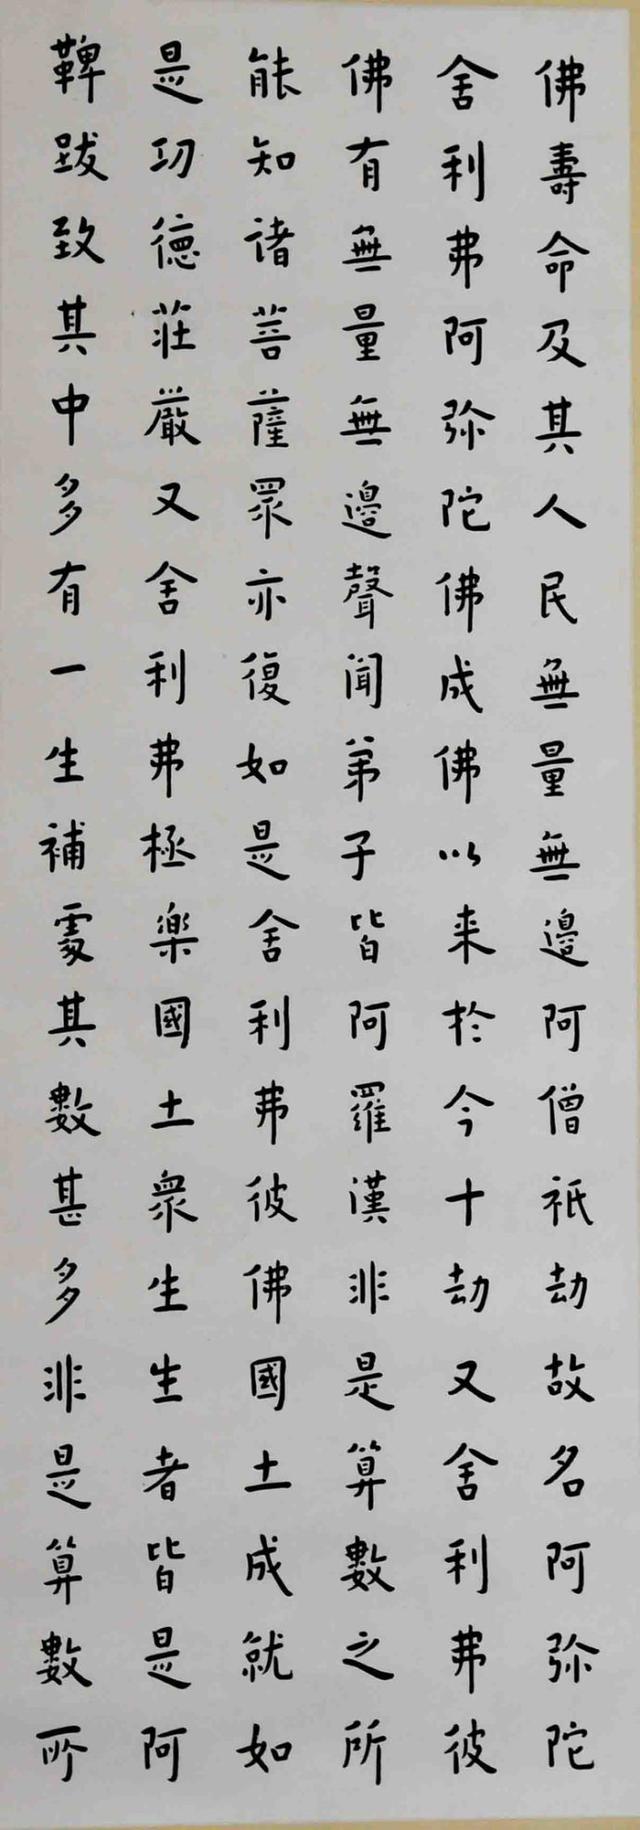 佛壽命及其人民無量無邊阿僧祇劫故名阿弥陀
舍利弗阿弥陀佛成佛以来於今十劫又舍利弗彼
佛有無量無邊聲聞弟子皆阿羅漢非是算數之所
能知诸菩薩眾亦復如是舍利弗彼佛國土成就如
是功德莊嚴又舍利弗極楽國土衆生生者皆是阿
鞞跋致其中多有一生補處其數甚多非是算數所